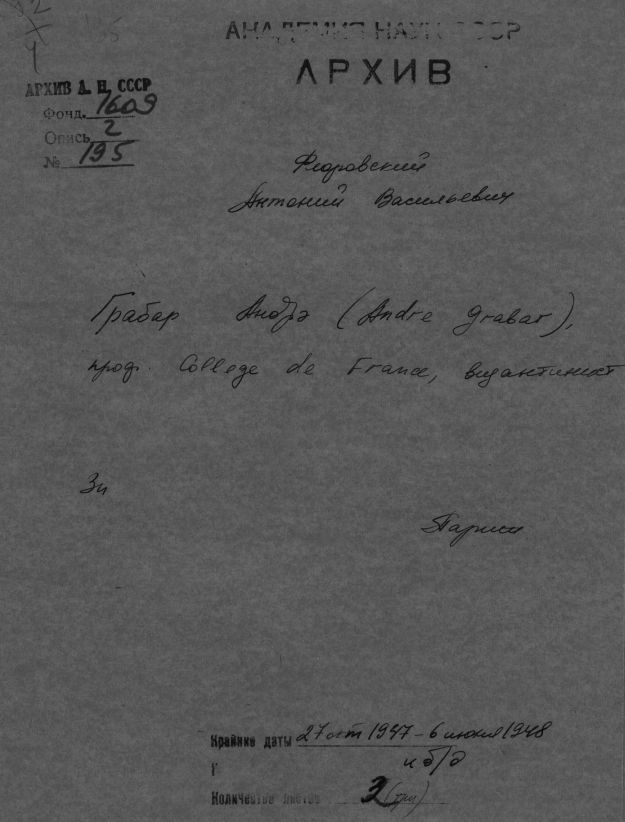 АКАДЕМИЯ НАУК СССР
АРХИВ
АРХИВ А. Н. СССР
Фонд. 1609
Опись 2
№ 195
Федровский
Антоний Васильевич
Грабар Андрэ (Andre Grabar),
проф. College de France, византинист
3п
Париж
Крайние даты 27 окт 1947 – 6 июня 1948
и б/д
Количество листов 3 (три)